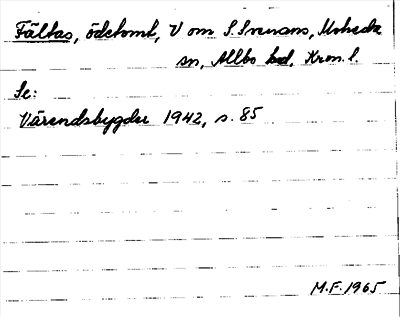 Fältas, ödetomt, V om S. Svenans, Moheda
sn, Allbo hd, Kron. l.
Se:
Värendsbygder 1942, s. 85
M.F. 1965